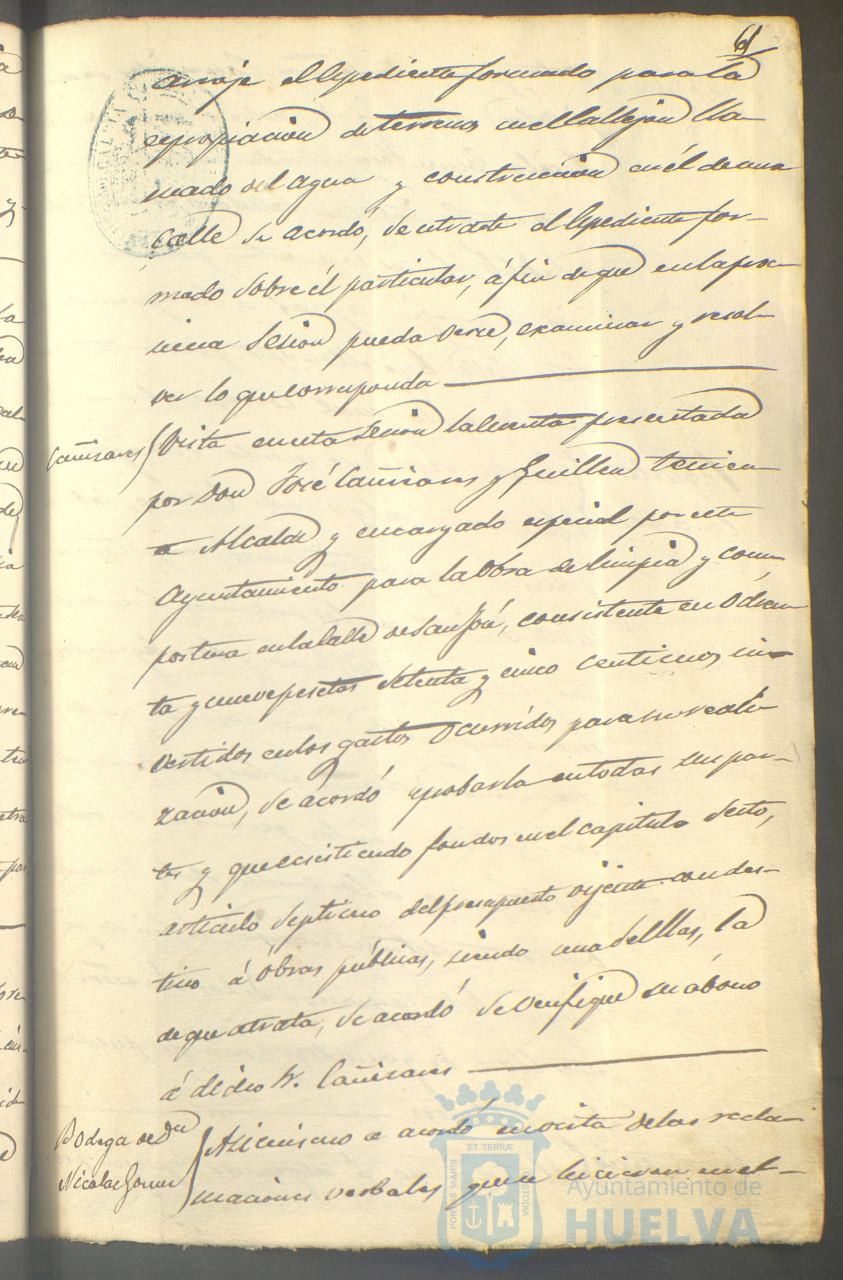 61
arroje el Espediente formado para la
espropiacion de terrenos en el Callejon lla-
mado del Agua y construccion en él de una
Calle se acordó, se estudie el Espediente for-
mado sobre él particular, á fin de que en la pro-
sima Sesion pueda verse, examinar y resol-
ver lo que corresponda
Cañisares
Vista en esta Sesion la Cuenta presentada
por Don José Cañisares y Guillen Tenien-
te Alcalde y encargado especial por este
Ayuntamiento para la Obra de limpia y com-
postura en la Calle de San José, consistente en
ta y nueve pesetas setenta y cinco centimos in-
vertidos en los gastos ocurridos para su reali-
zacion, se acordó aprobarla en todas sus par-
tes y que ecsistiendo fondos en el capitulo Sesto,
articulo Septimo del presupuesto vijente con des-
tino á Obras públicas, siendo una de ellas, la
de que se trata, se acordó se verifique su abono
á dicho Sr. Cañisares
Bodega de Dn
Nicolas Gomez
Asi mismo se acordó en vista de las recla-
maciones verbales que se hicieron en el
ET TERRÆ
PORTUS MARIS
CUSTODIA
Ayuntamiento de
HUELVA